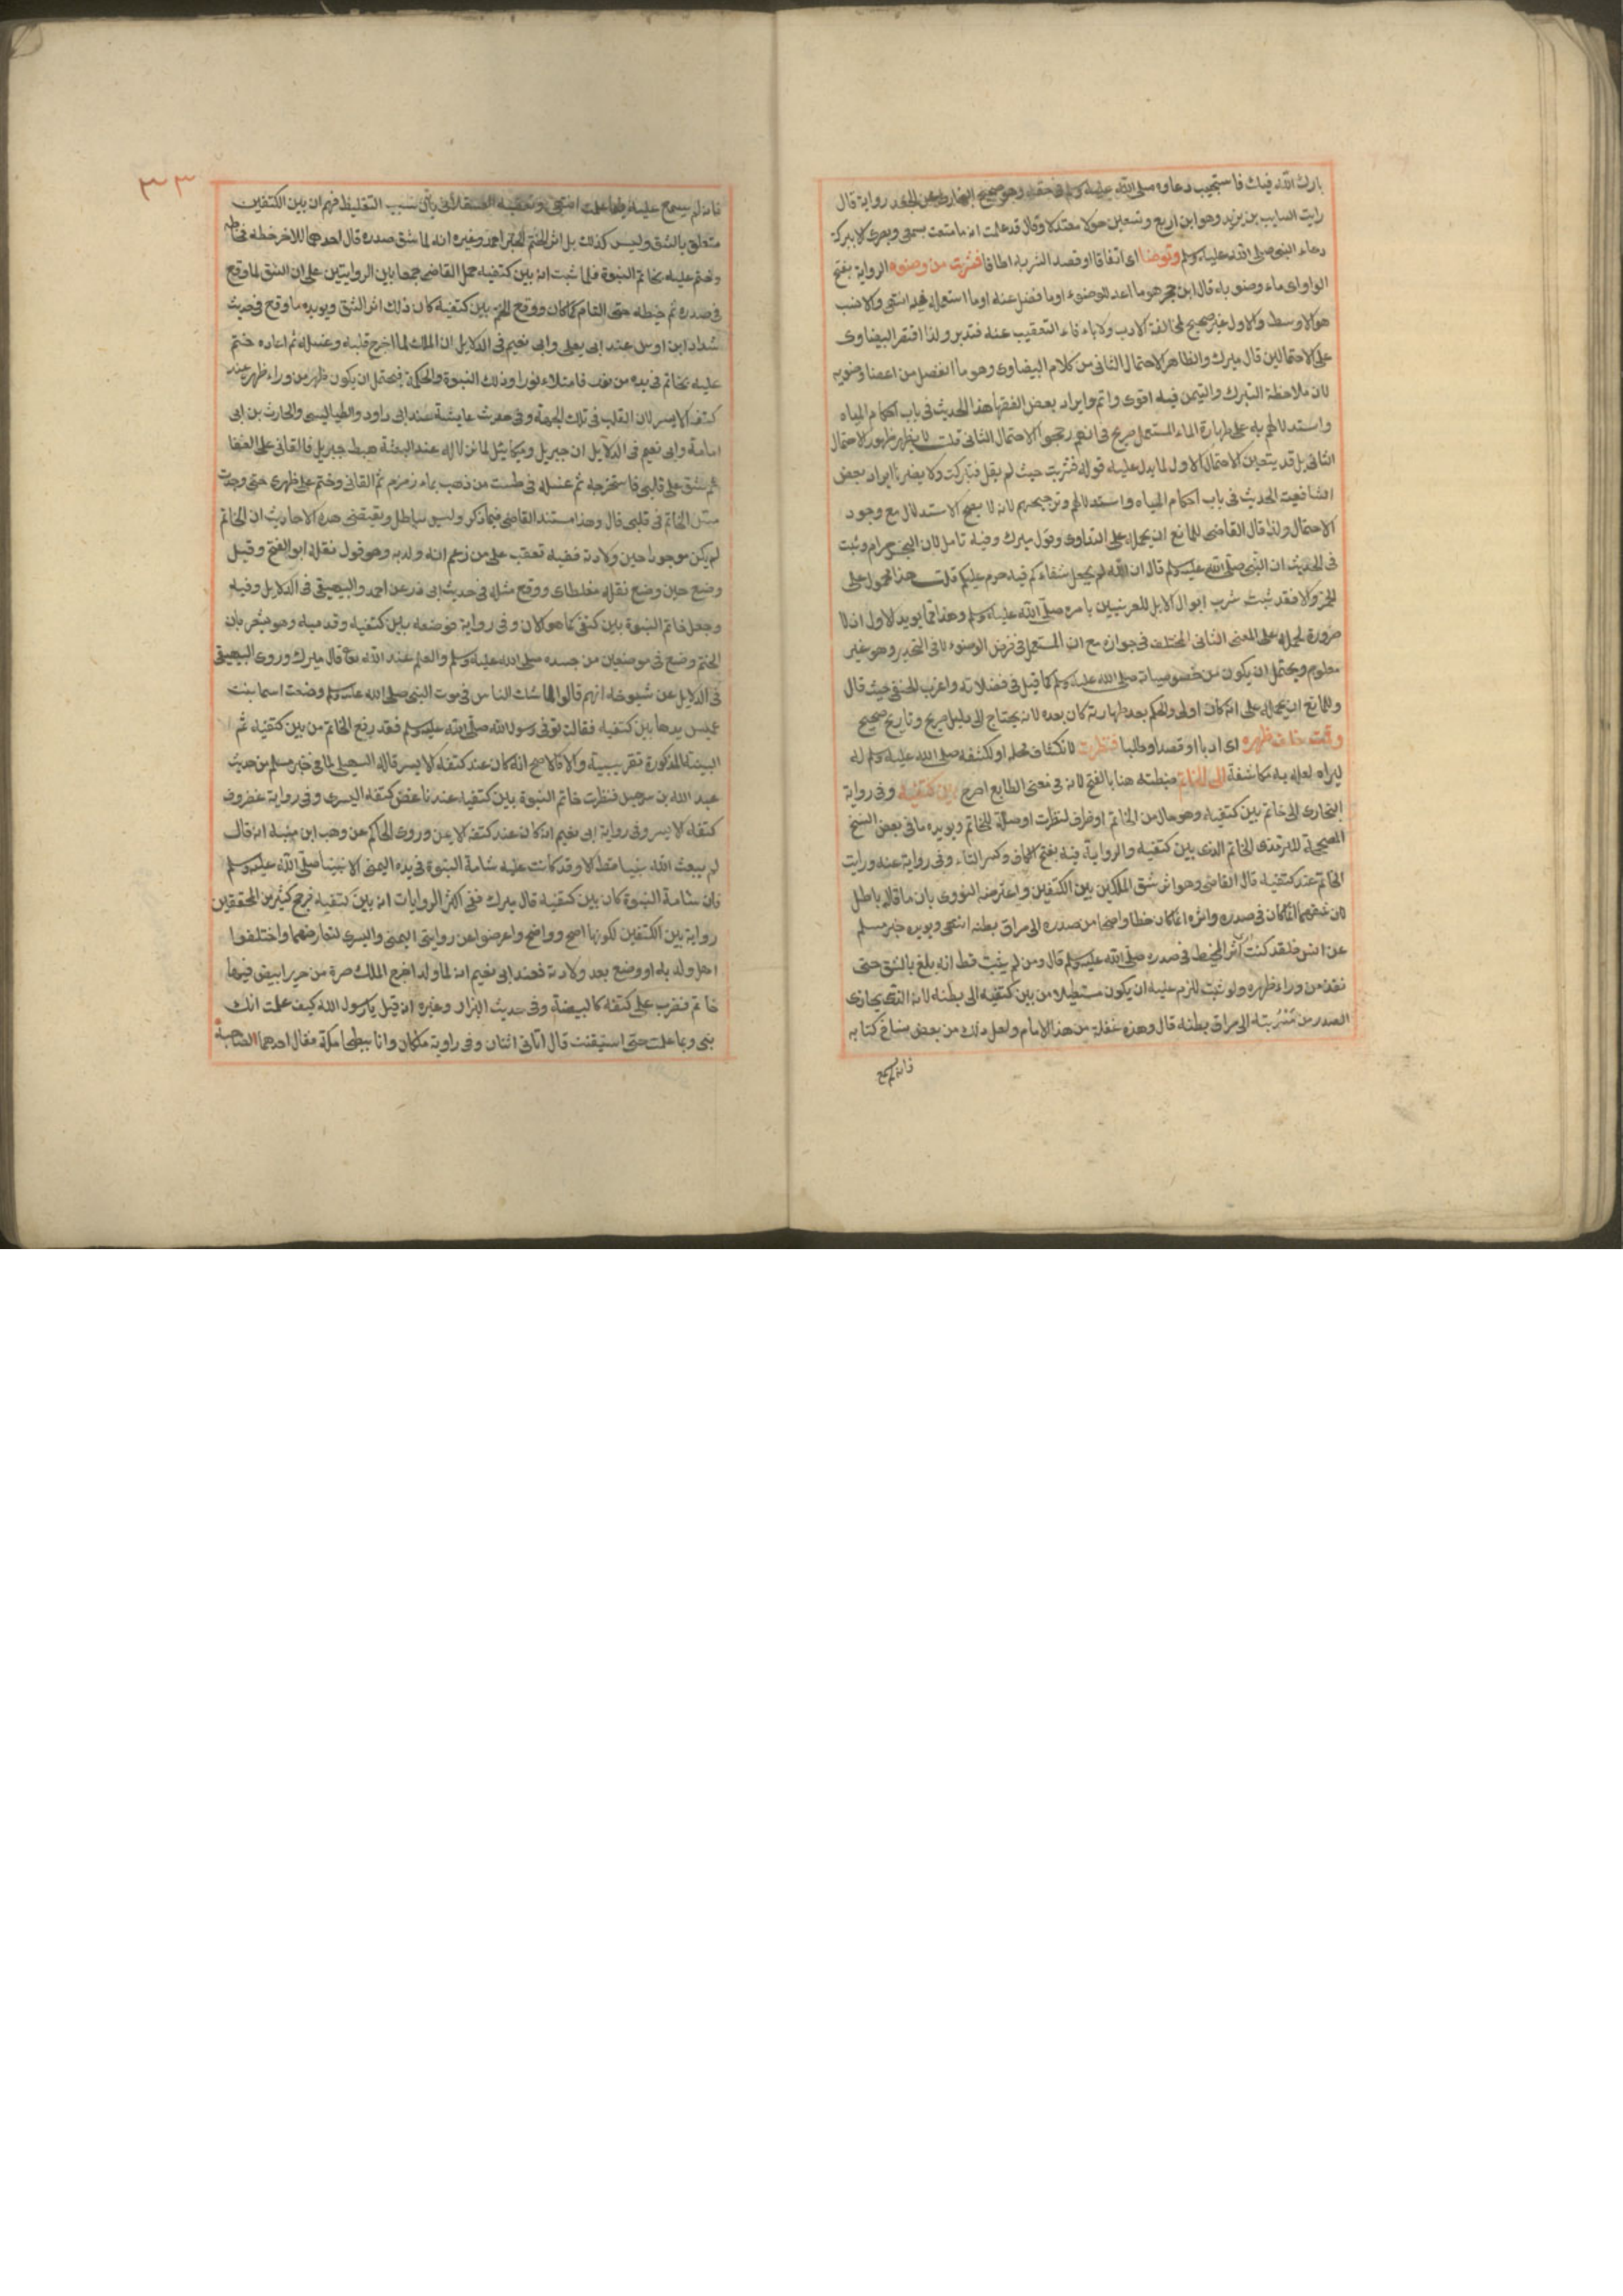 بارك الله فيك فاستجيب دعاوه صلى الله عليه وسلم في حقه وهو صحيح البخاري عن الجعد رواية قال
رايت السايب بن يزيد وهو ابن اربع وتسعين حولا معتدلا وقال قد علمت انه ما متعت بسمعى وبصرى الا ببركة
دعاء النبي صلى الله عليه وسلم وتوضا اى اتفاقا او قصد الشربه فشربت من وضوءه الرواية بفتح
الواو اى ماء وضوءه قال ابن حجر هو ما اعد للوضوء او ما فضل عنه او ما استعمله فيه انتهى والانسب
هو الاوسط والاول غير صحيح لمخالفة الادب ولاباء فاء التعقيب عنه فتدبر ولذا اقتصر البيضاوى
على الاحتمالين قال ميرك والظاهر الاحتمال الثانى من كلام البيضاوى وهو ما انفصل من اعضا وضويه
لان ملاحظة التبرك والتيمن فيه اقوى واتم وايراد بعض الفقها هذا الحديث فى باب احكام المياه
واستدلالهم به على طهارة الماء المستعمل صريح فى انهم رجحوا الاحتمال الثانى قلت لا يظهر ظهور الاحتمال
الثانى بل قد يتعين الاحتمال الاول لما يدل عليه قوله فشربت حيث لم يقل فتبركت ولا يضرنا ايراد بعض
الشافعية الحديث فى باب احكام المياه واستدلالهم وترجيحهم لانه لا يصح الاستدلال مع وجود
الاحتمال ولذا قال القاضى للمانع ان يحمله على التداوى وقول ميرك وفيه تامل لان النجس حرام وثبت
فى الحديث ان النبي صلى الله عليه وسلم قال ان الله لم يجعل شفاءكم فيما حرم عليكم قلت هذا محمول على
الخمر والا فقد ثبت شرب ابوال الابل للعرنيين بامره صلى الله عليه وسلم وهذا مما يويد الاول انه لا
ضرورة لحمله على المعنى الثانى المختلف فى جوازه مع ان المستعمل فى فرض الوضوء لا فى التجديد وهو غير
معلوم ويحتمل ان يكون من خصوصياته صلى الله عليه وسلم كما قيل فى فضلاته واغرب الحنفى حيث قال
وللمانع ان يحمله على انه كان اولى والحكم بعد طهارته كان بعده لانه يحتاج الى دليل صريح وتاريخ صحيح
وقمت خلف ظهره اى ادبا او قصدا وطلبا فنظرت لانكشاف محله او لكشفه صلى الله عليه وسلم له
ليراه لعله به مكاشفة الى الخاتم ضبطته هنا بالفتح لانه فى معنى الطابع اصرح بين كتفيه وفى رواية
البخارى الى خاتم بين كتفيه وهو حال من الخاتم او ظرف لنظرت او صلة للخاتم ويويده ما فى بعض النسخ
المصححة للترمذى الخاتم الذى بين كتفيه والرواية فيه بفتح الكاف وكسر التاء وفى رواية عنه ورايت
الخاتم عند كتفيه قال القاضى وهو اثر شق الملكين بين الكتفين واعترضه النووى بان ما قاله باطل
لان شقهما انما كان فى صدره واثره انما كان خطا واضحا من صدره الى مراق بطنه انتهى ويويده خبر مسلم
عن انس فلقد كنت اثر المخيط فى صدره صلى الله عليه وسلم قال ومن لم يثبت قط انه بلغ بالشق حتى
نفذ من وراء ظهره ولو ثبت للزم عليه ان يكون مستطيلا من بين كتفيه الى بطنه لانه الذى يحاذى
الصدر من مسربته الى مراق بطنه قال وهذه غفلة من هذا الامام ولعل ذلك من بعض نساخ كتابه
فانه لم يسمع
٣٣
فانه لم يسمع عليه فيما علمت انتهى وتعقبه العسقلانى بان سبب التغليط فهم ان بين الكتفين
متعلق بالشق وليس كذلك بل اثر الختم لخبر احمد وغيره انه لما شق صدره قال احدهما للاخر خطه فخاطه
وختم عليه بخاتم النبوة فلما ثبت انه بين كتفيه حمل القاضى جمعا بين الروايتين على ان الشق لما وقع
فى صدره ثم خيطه حتى التام كما كان ووقع الختم بين كتفيه كان ذلك اثر الشق ويويده ما وقع فى حديث
شداد ابن اوس عند ابى يعلى وابى نعيم فى الدلايل ان الملك لما اخرج قلبه وغسله ثم اعاده ختم
عليه بخاتم فى يده من نور فامتلاء نورا وذلك النبوة والحكمة فيحتمل ان يكون ظهر من وراء ظهره عند
كتفه الايسر لان القلب فى تلك الجهة وفى حديث عايشة عند ابى داود والطيالسى والحارث بن ابى
اسامة وابى نعيم فى الدلايل ان جبريل وميكائيل لما نزلا له عند البعثة هبط جبريل فالقانى على القفا
ثم شق على قلبى فاستخرجه ثم غسله فى طست من ذهب بماء زمزم ثم القانى وختم على ظهرى حتى وجدت
مس الخاتم فى قلبى قال وهذا مستند القاضى فيما ذكر وليس بباطل وبقيتضى هذه الاحاديث ان الخاتم
لم يكن موجودا حين ولادته ففيه تعقب على من زعم انه ولد به وهو قول نقله ابو الفتح وقيل
وضع حين وضع نقله مغلطاى ووقع مثله فى حديث ابى ذر عن احمد والبيهقى فى الدلايل وفيه
وجعل خاتم النبوة بين كتفى كما هو الان وفى رواية فوضعه بين كتفيه وقدميه وهو مشعر بان
الختم وضع فى موضعين من جسده صلى الله عليه وسلم والعلم عند الله تع قال ميرك وروى البيهقى
فى الدلايل عن شيوخه انهم قالوا لما شك الناس فى موت النبى صلى الله عليه وسلم وضعت اسما بنت
عميس يدها بين كتفيه فقالت توفى رسول الله صلى الله عليه وسلم فقد رفع الخاتم من بين كتفيه ثم
البينية المذكورة تقريبية والا فالاصح انه كان عند كتفه الايسر قاله السهيلى لما فى خبر مسلم من حديث
عبد الله بن سرجس فنظرت خاتم النبوة بين كتفيه عند ناغض كتفه اليسرى وفى رواية غضروف
كتفه الايسر وفى رواية ابى نعيم انه كان عند كتفه الايمن وروى الحاكم عن وهب ابن منبه انه قال
لم يبعث الله نبيا قط الا وقد كانت عليه شامة النبوة فى يده اليمنى الا نبينا صلى الله عليه وسلم
فان شامة النبوة كان بين كتفيه قال ميرك ففى اكثر الروايات انه بين كتفيه فرجح كثير من المحققين
رواية بين الكتفين لكونها اصح وواضح واعرضوا عن روايتى اليمنى واليسرى لتعارضهما واختلفوا
اهل ولد به او وضع بعد ولادته فعند ابى نعيم انه لما ولد اخرج الملك صرة من حرير ابيض فيها
خاتم فضرب على كتفه كالبيضة وفى حديث البزار وغيره انه قيل يا رسول الله كيف علمت انك
نبى وبما علمت حتى استيقنت قال اتانى اثنان وفى رواية ملكان وانا ببطحا مكة فقال احدهما لصاحبه